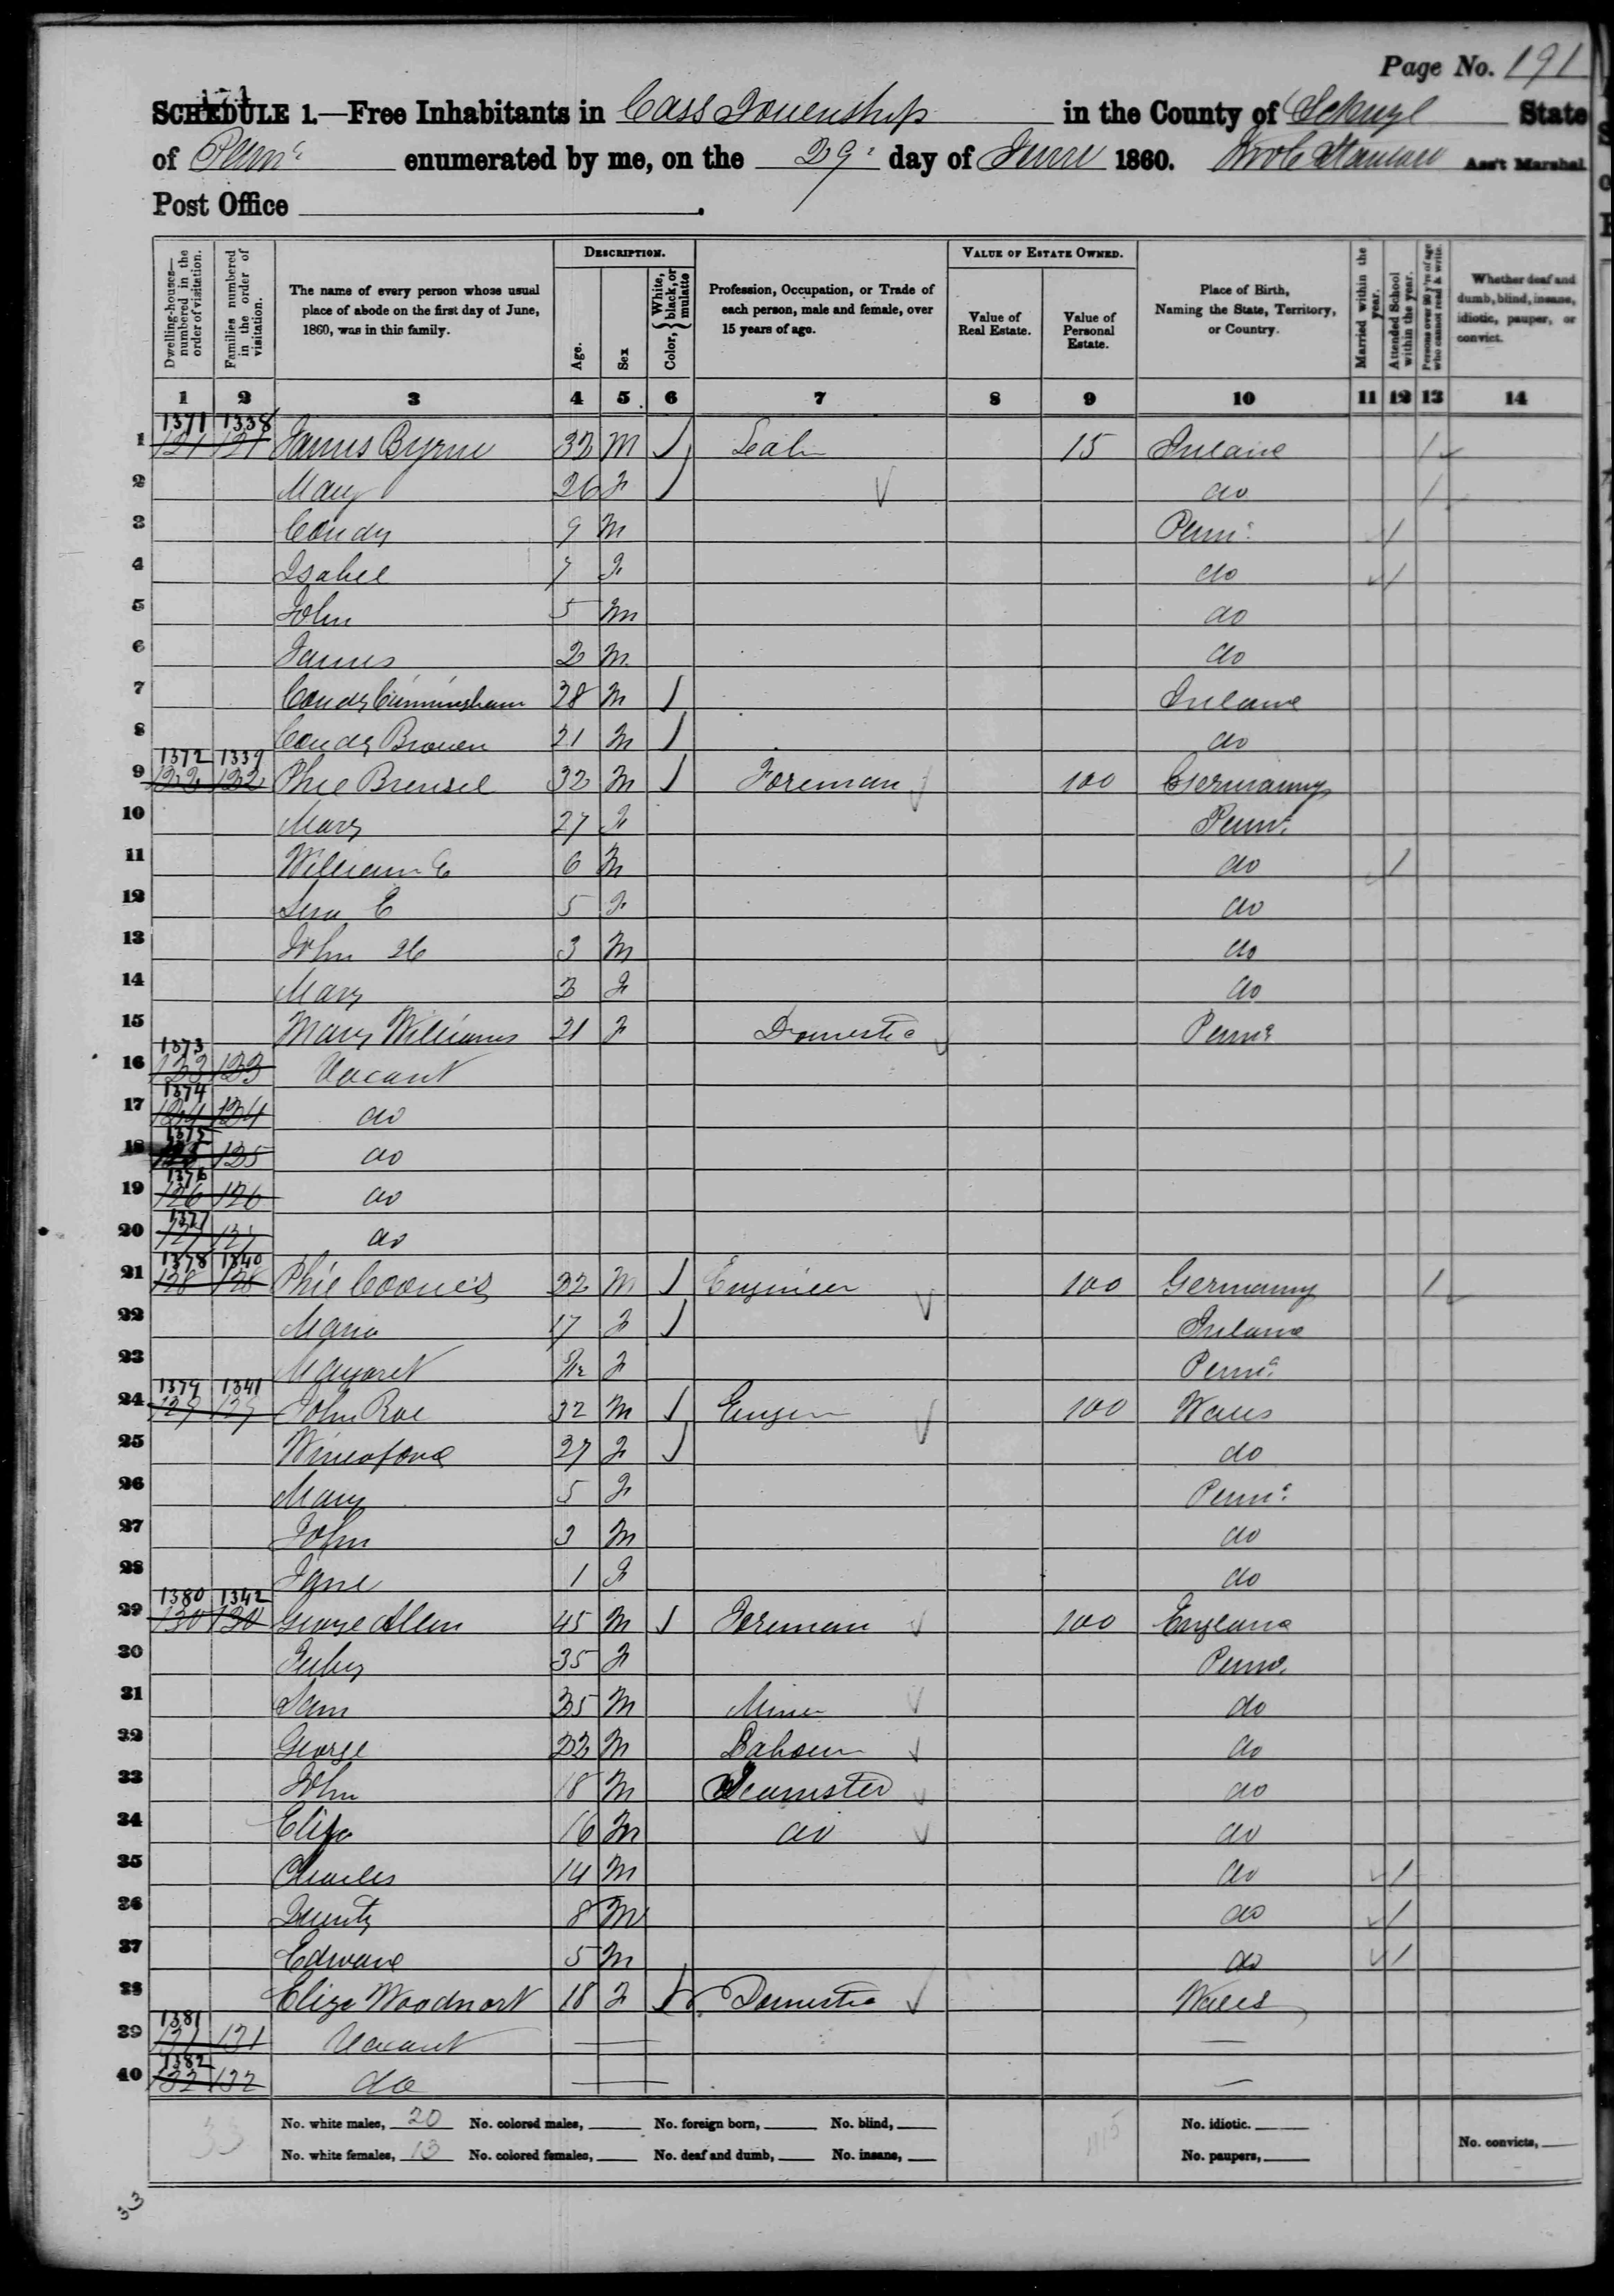 Page No. 191
171
SCHEDULE 1.—Free Inhabitants in Cass Township in the County of Schuyl State
of Penna enumerated by me, on the 29 day of June 1860. Ass't Marshal
Post Office
Dwelling-houses—numbered in the order of visitation.
Families numbered in the order of visitation.
The name of every person whose usual place of abode on the first day of June, 1860, was in this family.
DESCRIPTION.
Age.
Sex
Color, White, black, or mulatto
Profession, Occupation, or Trade of each person, male and female, over 15 years of age.
VALUE OF ESTATE OWNED.
Value of Real Estate.
Value of Personal Estate.
Place of Birth, Naming the State, Territory, or Country.
Married within the year.
Attended School within the year.
Persons over 20 y'rs of age who cannot read & write.
Whether deaf and dumb, blind, insane, idiotic, pauper, or convict.
1 2 3 4 5 6 7 8 9 10 11 12 13 14
1371 1338
1 121 121 James Byrne 32 M 15 Ireland 1
2 Mary 26 F do 1
3 Condy 9 M Penna 1
4 Isabel 7 F do 1
5 John 5 M do
6 James 2 M do
7 Condy Cunningham 28 M Ireland
8 Condy Brown 21 M do
1372 1339
9 122 122 Phil Brensel 32 M Foreman 100 Germany
10 Mary 27 F Penna
11 William E 6 M do 1
12 E 5 F do
13 John H 3 M do
14 Mary 3 F do
15 Mary Williams 21 F Domestic Penna
1373
16 123 123 Vacant
1374
17 124 124 do
1375
18 125 125 do
1376
19 126 126 do
1377
20 127 127 do
1378 1340
21 128 128 Phil 32 M Engineer 100 Germany 1
22 Maria 17 F Ireland
23 Margaret F Penna
1379 1341
24 129 129 John Roe 32 M Engin 100 Wales
25 27 F do
26 Mary 5 F Penna
27 John 3 M do
28 Jane 1 F do
1380 1342
29 130 130 George Allen 45 M Foreman 100 England
30 35 F Penna
31 Sam 25 M Miner do
32 George 22 M Laborer do
33 John 18 M Teamster do
34 Eliza 16 M do do
35 Charles 14 M do 1
36 8 M do 1
37 Edward 5 M do 1
38 Eliza Woodnort 18 F Domestic Wales
1381
39 131 131 Vacant
1382
40 132 132 do
33 No. white males, 20 No. colored males, No. foreign born, No. blind, 415 No. idiotic.
No. white females, 13 No. colored females, No. deaf and dumb, No. insane, No. paupers, No. convicts,
33